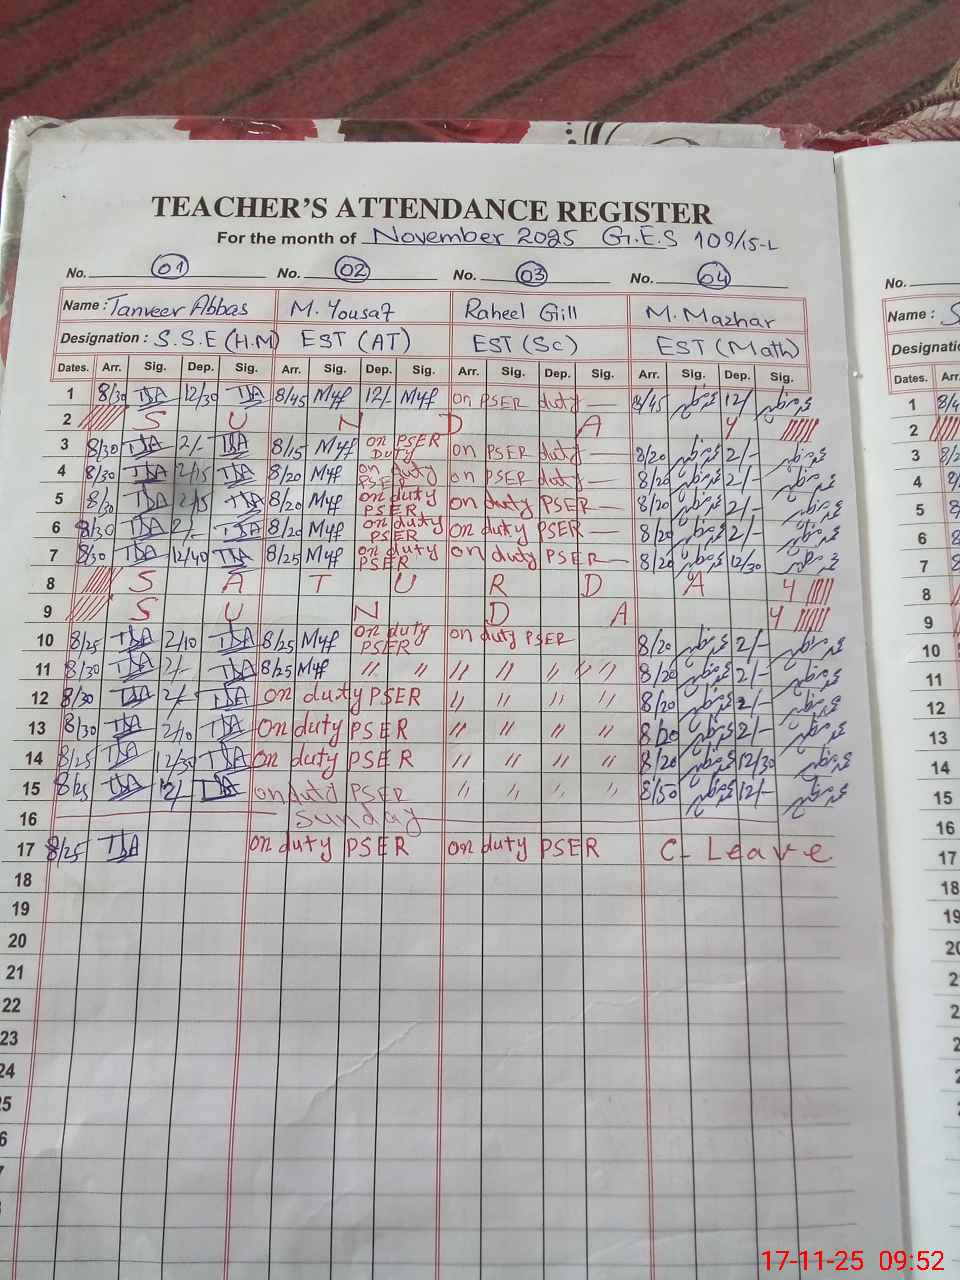 TEACHER'S ATTENDANCE REGISTER
For the month of November 2025 G.E.S 109/15-L
No. 01 No. 02 No. 03 No. 04 No.
Name : Tanveer Abbas M. Yousaf Raheel Gill M. Mazhar Name :
Designation : S.S.E (H.M) EST (AT) EST (Sc) EST (Math) Designatio
Dates. Arr. Sig. Dep. Sig. Arr. Sig. Dep. Sig. Arr. Sig. Dep. Sig. Arr. Sig. Dep. Sig. Dates. Arr
1 8/30 12/30 8/45 Myf 12/- Myf on PSER duty — 8/45 12/- 1
2 S U N D A Y 2
3 8/30 2/- 8/15 Myf on PSER DUTY on PSER duty — 8/20 2/- 3
4 8/30 2/15 8/20 Myf on duty PSER on PSER duty — 8/20 2/- 4
5 8/30 2/15 8/20 Myf on duty PSER on duty PSER — 8/20 2/- 5
6 8/30 2/- 8/20 Myf on duty PSER on duty PSER — 8/20 2/- 6
7 8/30 12/40 8/25 Myf on duty PSER on duty PSER — 8/20 12/30 7
8 S A T U R D A Y 8
9 S U N D A Y 9
10 8/25 2/10 8/25 Myf on duty PSER on duty PSER 8/20 2/- 10
11 8/30 2/- 8/25 Myf " " " " " " " 8/20 2/- 11
12 8/30 2/- on duty PSER " " " " 8/20 2/- 12
13 8/30 2/10 on duty PSER " " " " 8/20 2/- 13
14 8/25 12/35 on duty PSER " " " " 8/20 12/30 14
15 8/25 12/- on duty PSER " " " " 8/50 12/- 15
16 Sunday 16
17 8/25 on duty PSER on duty PSER C- Leave 17
18 18
19 19
20 20
21
22
23
24
17-11-25 09:52